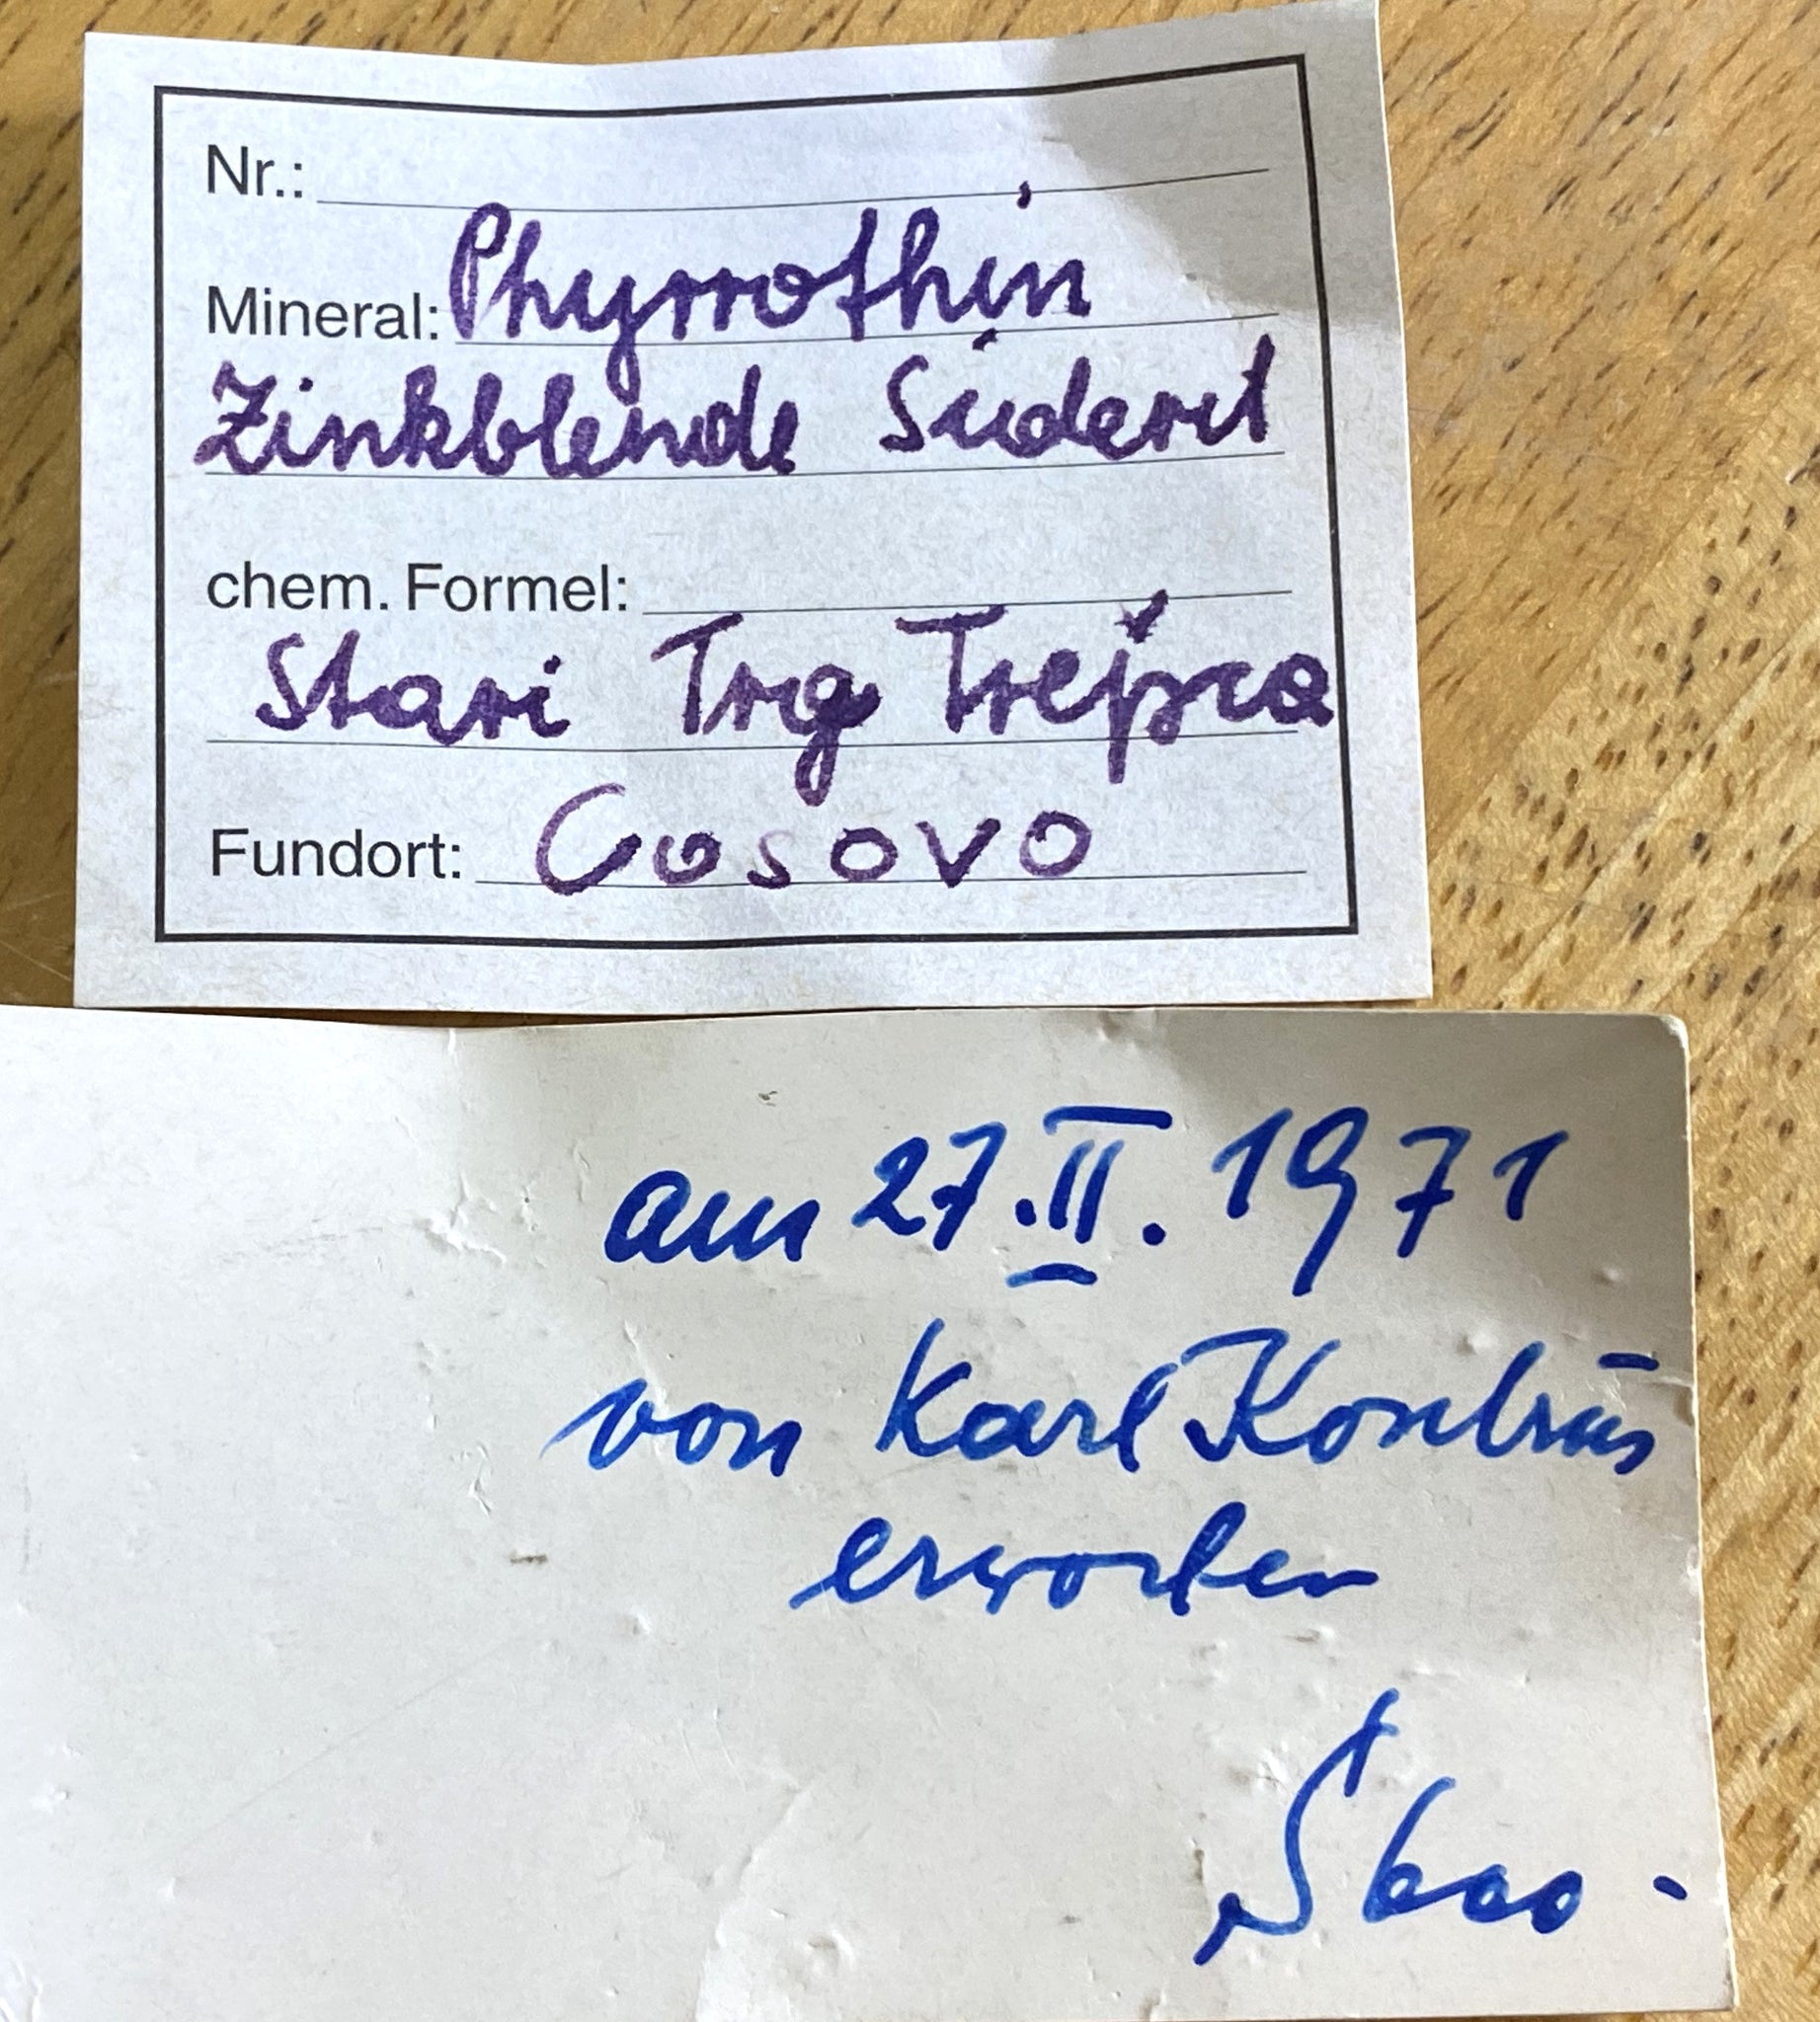 Nr.:
Mineral: Phyrrothin
Zinkblende Siderit
chem. Formel:
Stari Trg Trepča
Fundort: Cosovo
am 27.II.1971
von Karl Kontrus
erworben
S 600.-